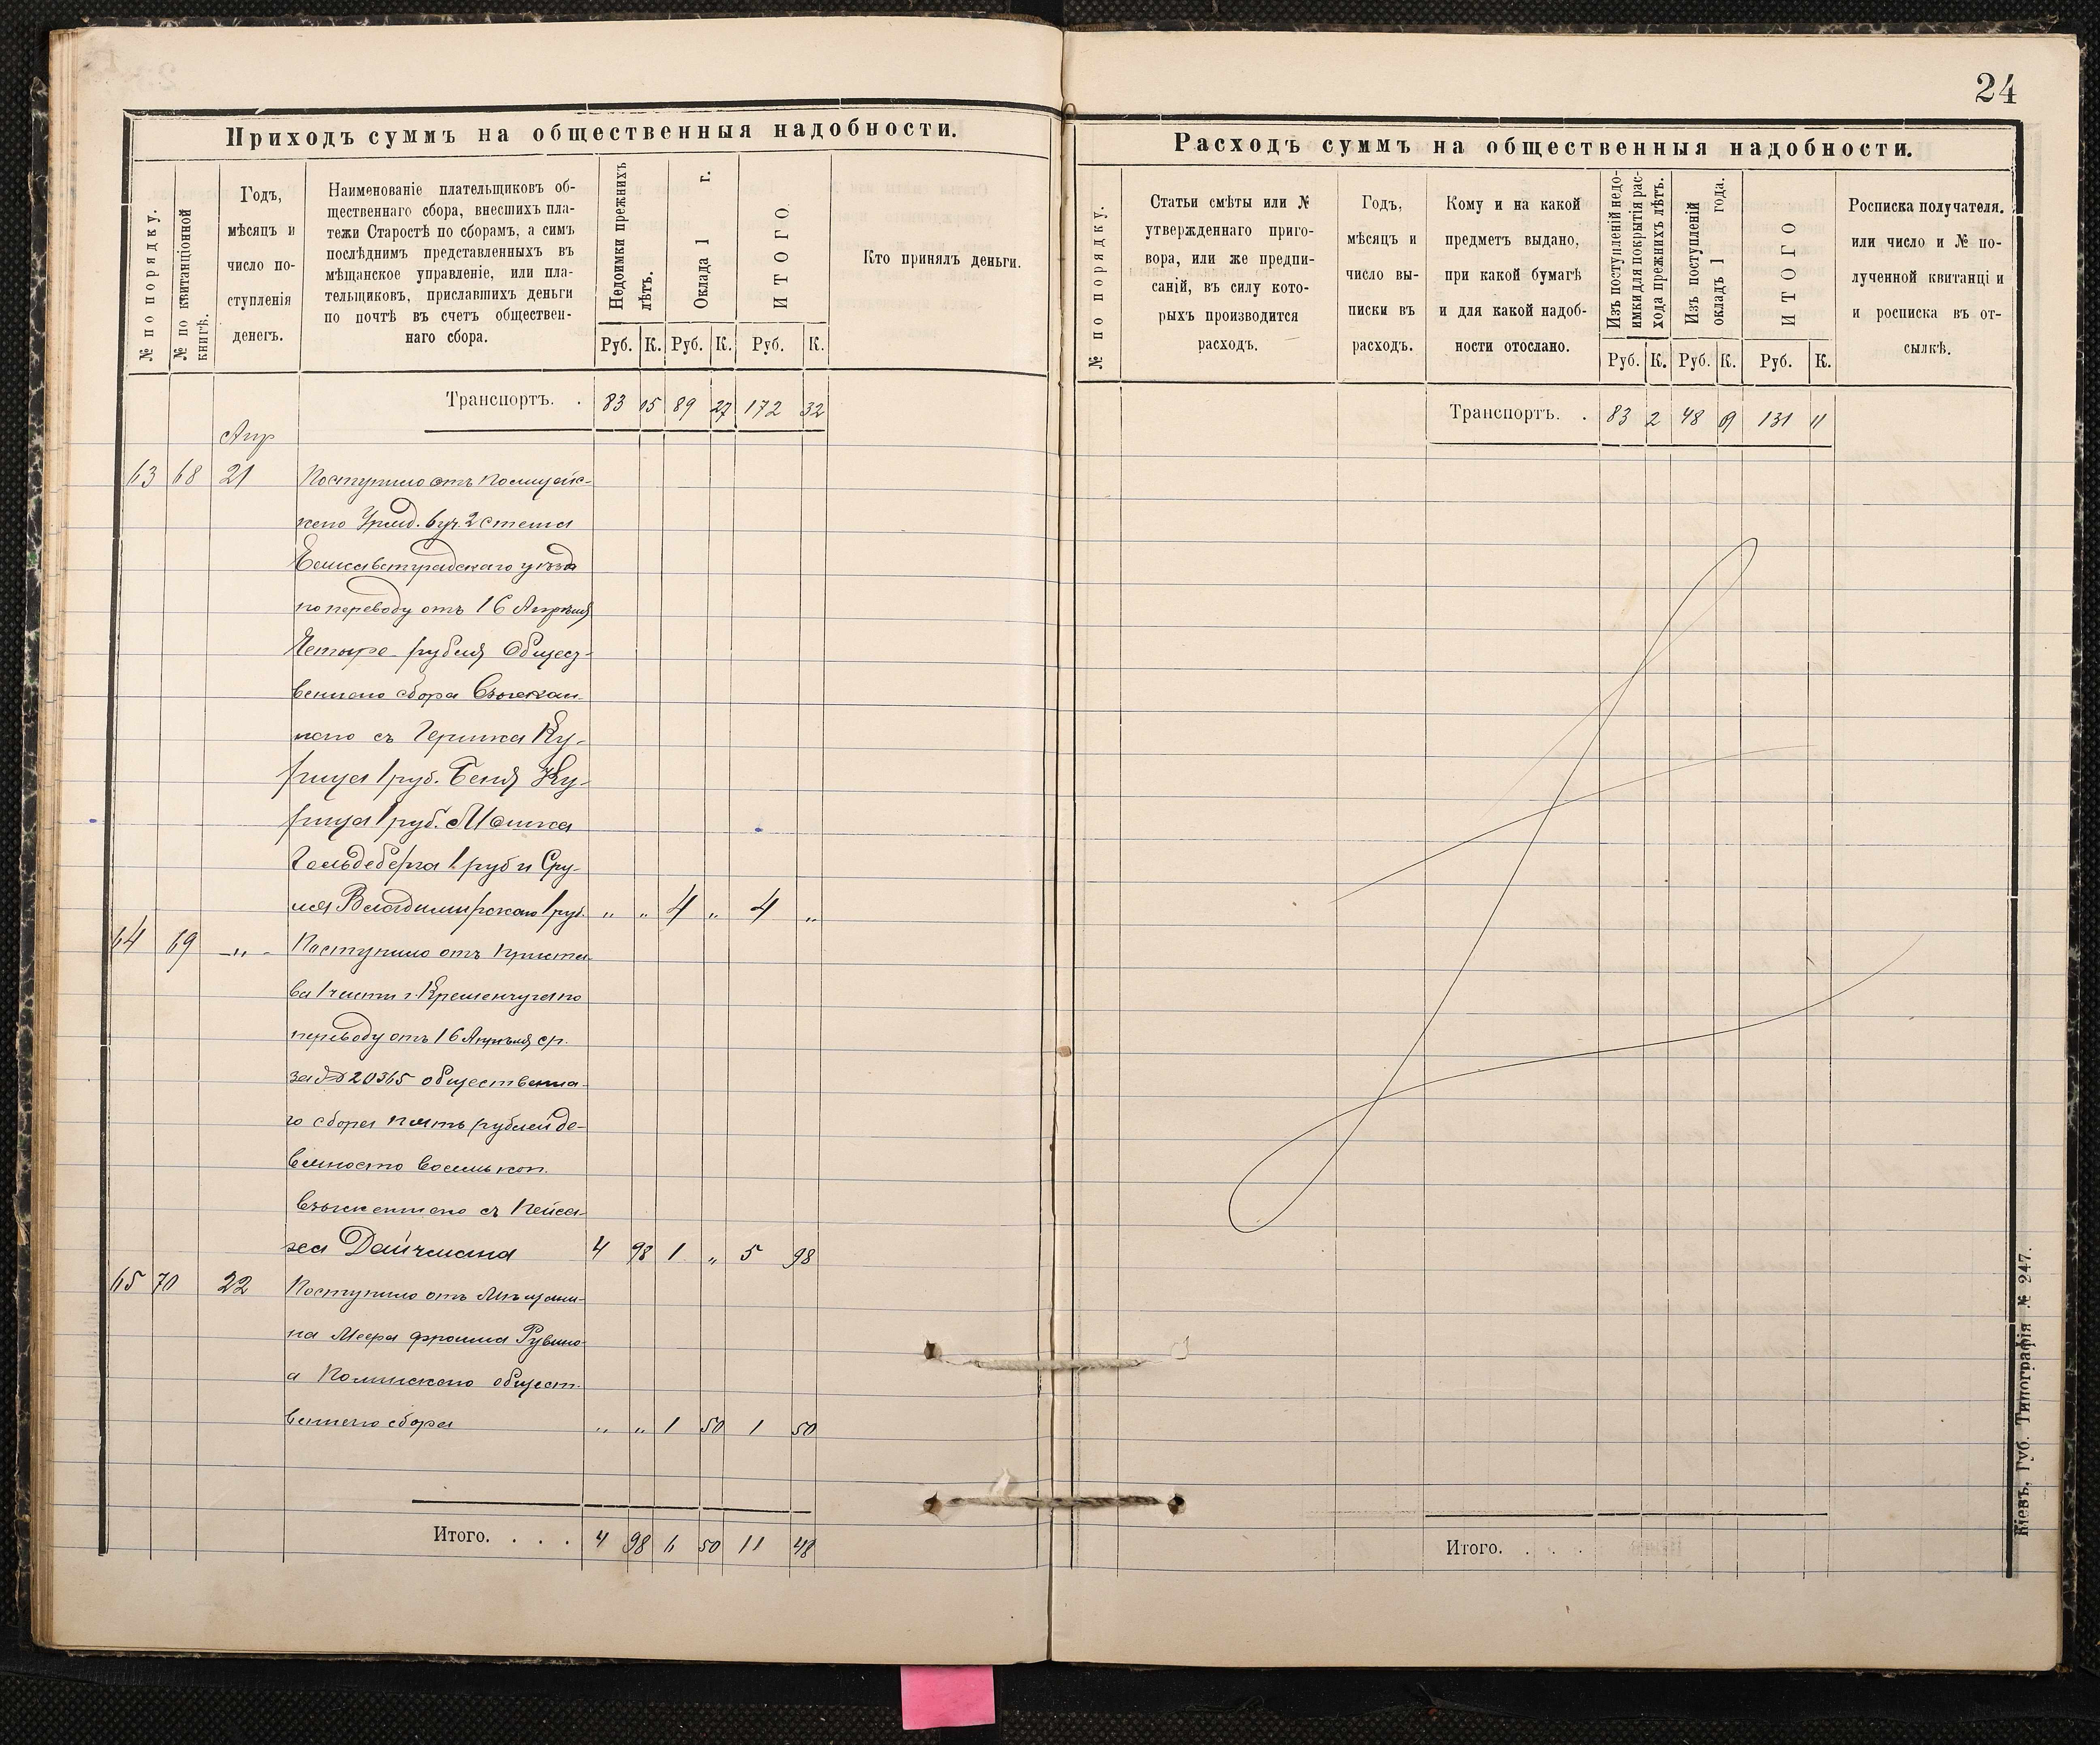 24
Приходъ суммъ на общественныя надобности.
№ по порядку.
№ по квитанціонной
книгѣ.
Годъ,
мѣсяцъ и
число по-
ступленія
денегъ.
Наименованіе плательщиковъ об-
щественнаго сбора, внесшихъ пла-
тежи Старостѣ по сборамъ, а симъ
послѣднимъ представленныхъ въ
мѣщанское управленіе, или пла-
тельщиковъ, приславшихъ деньги
по почтѣ въ счетъ обществен-
наго сбора.
Недоимки прежнихъ
лѣтъ.
Оклада 1 г.
ИТОГО
Кто принялъ деньги.
Руб. К. Руб. К. Руб. К.
Транспортъ. . 83 05 89 27 172 32
Апр
63 68 21 Поступило отъ Полицейс-
каго Уряд. 6 уч. 2 стана
Елисаветградскаго уѣзда
по переводу отъ 16 Апрѣля
Четыре рубля Общест-
веннаго сбора Взыскан-
наго съ Гершка Ку-
рица 1 руб. Беня Ку-
рица 1 руб. Мошка
Гольдеберга 1 руб и Сру-
ля Владимирскаго 1 руб. " " 4 " 4 "
64 69 -"- Поступило отъ Приста-
ва 1 части г. Кременчуга по
переводу отъ 16 Апрѣля с/г.
за № 20365 общественна-
го сбора пять рублей де-
вяносто восемь коп.
Взысканнаго съ Пейса-
ха Дайчмана 4 98 1 " 5 98
65 70 22 Поступило отъ Мѣщани-
на Меера Фроима Рувино-
а Полинскаго общест-
веннаго сбора " " 1 50 1 50
Итого. . . . 4 98 6 50 11 48
Расходъ суммъ на общественныя надобности.
№ по порядку.
Статьи смѣты или №
утвержденнаго приго-
вора, или же предпи-
саній, въ силу кото-
рыхъ производится
расходъ.
Годъ,
мѣсяцъ и
число вы-
писки въ
расходъ.
Кому и на какой
предметъ выдано,
при какой бумагѣ
и для какой надоб-
ности отослано.
Изъ поступленій недо-
имки для покрытія рас-
хода прежнихъ лѣтъ.
Изъ поступленій
окладъ 1 года.
ИТОГО
Росписка получателя.
или число и № по-
лученной квитанці и
и росписка въ от-
сылкѣ.
Руб. К. Руб. К. Руб. К.
Транспортъ. . 83 2 48 09 131 11
Итого. . . .
Кіевъ, Губ. Типографія № 247.